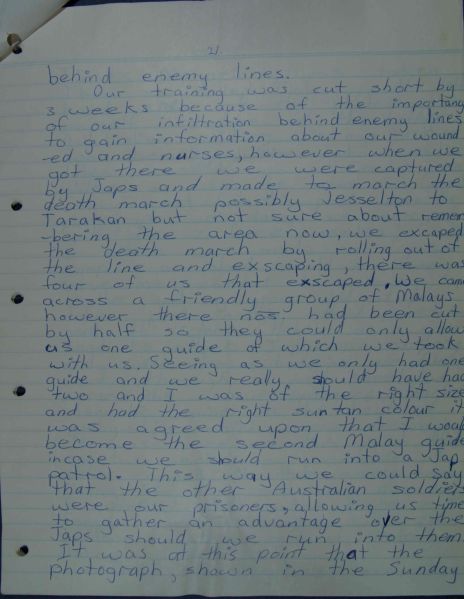 21
behind enemy lines.
Our training was cut short by
3 weeks because of the importanc
of our infiltration behind enemy lines
to gain information about our wound
-ed and nurses, however when we
got there we were captured
by Japs and made to march the
death march possibly Jesselton to
Tarakan but not sure about remem
-bering the area now, we excaped
the death march by rolling out of
the line and exscaping, there was
four of us that exscaped. We came
across a friendly group of Malays
however there nos. had been cut
by half so they could only allow
us one guide of which we took
with us. Seeing as we only had one
guide and we really should have had
two and I was of the right size
and had the right suntan colour it
was agreed upon that I would
become the second Malay guide
incase we should run into a Jap
patrol. This way we could say
that the other Australian soldiers
were our prisoners, allowing us time
to gather an advantage over the
Japs should we run into them.
It was at this point that the
photograph, shown in the Sunday